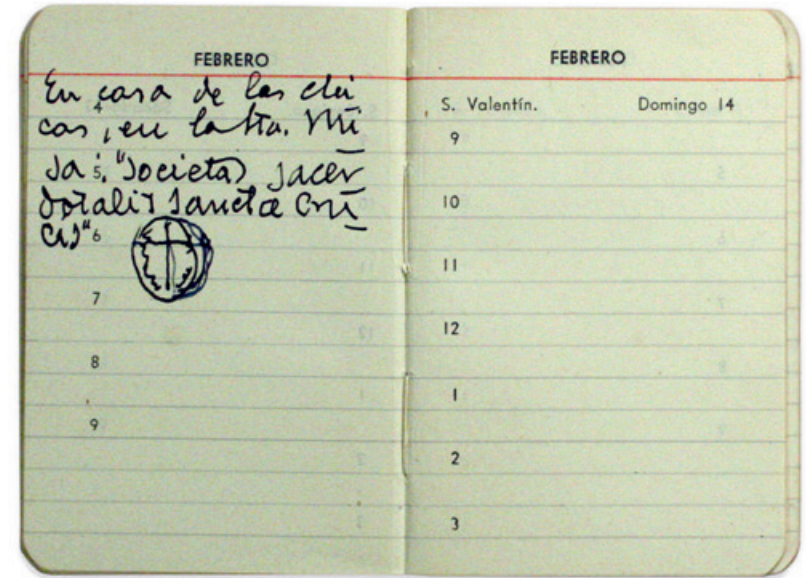 FEBRERO
En casa de las chi
cas, en la Sta. Mi
4
sa: "Societas sacer
5
dotalis Sanctae Cru
cis"
6
7
8
9
FEBRERO
S. Valentín. Domingo 14
9
10
11
12
1
2
3